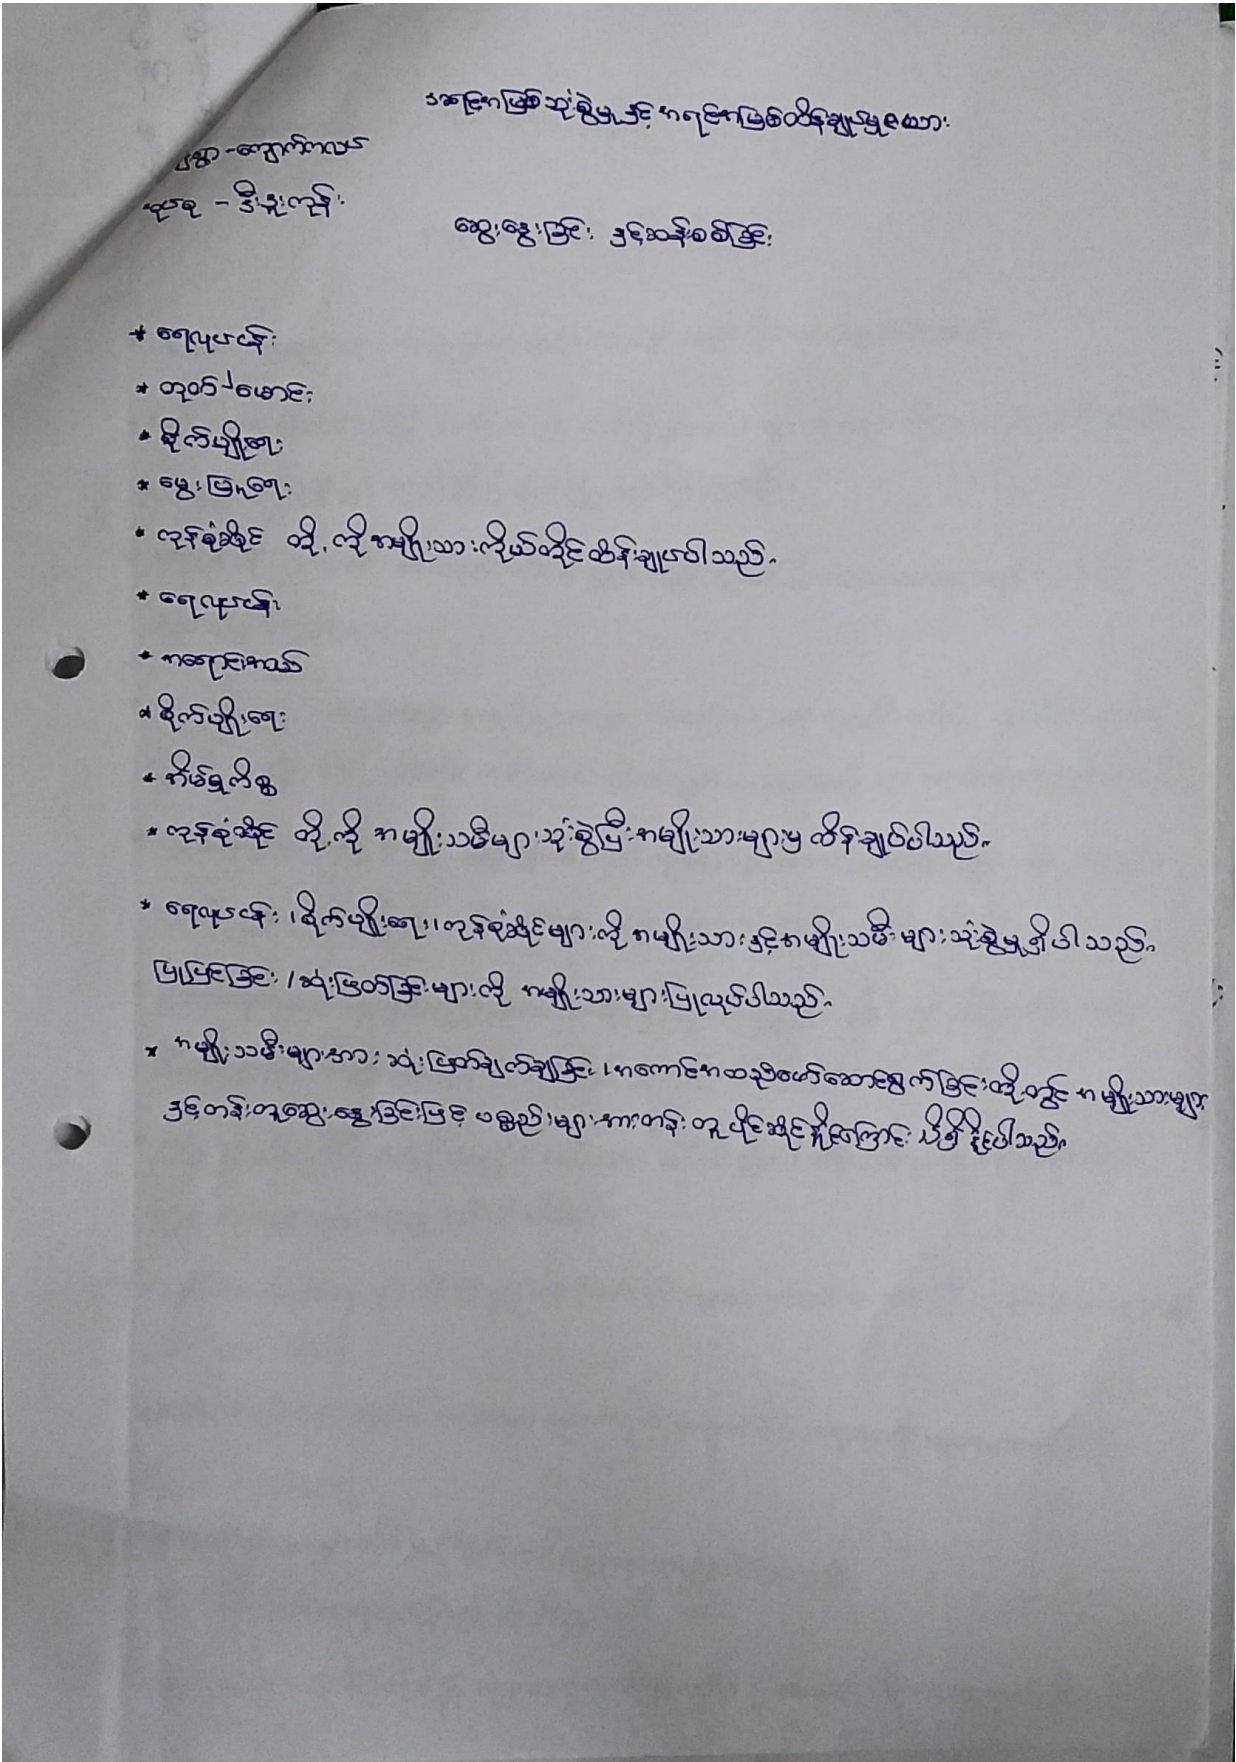 အရင်းအမြစ်သုံးစွဲမှုနှင့် အရင်းအမြစ်ထိန်းချုပ်မှုဇယား
ရွာ - ကျောက်ကလပ်
အုပ်စု - ဒီးဒူးကုန်း
ဆွေးနွေးခြင်း နှင့်ဆန်းစစ်ခြင်း
* ရေလုပ်ငန်း
* ဖောင်း
* စိုက်ပျိုးရေး
* မွေးမြူရေး
* ကုန်စုံဆိုင် တို့ကို အမျိုးသားကိုယ်တိုင်ထိန်းချုပ်ပါသည်။
* ရေလုပ်ငန်း
* အရောင်းအဝယ်
* စိုက်ပျိုးရေး
* အိမ်မှုကိစ္စ
* ကုန်စုံဆိုင် တို့ကို အမျိုးသမီးများသုံးစွဲပြီးအမျိုးသားများမှ ထိန်းချုပ်ပါသည်။
* ရေလုပ်ငန်း ၊ စိုက်ပျိုးရေး ၊ ကုန်စုံဆိုင်များကို အမျိုးသားနှင့်အမျိုးသမီးများသုံးစွဲမှုရှိပါသည်။
ပြုပြင်ခြင်း / ဆုံးဖြတ်ခြင်းများကို အမျိုးသားများပြုလုပ်ပါသည်။
* အမျိုးသမီးများအား ဆုံးဖြတ်ချက်ချခြင်း ၊ အကောင်အထည်ဖော်ဆောင်ရွက်ခြင်းတို့တွင် အမျိုးသားများ
နှင့်တန်းတူဆွေးနွေးခြင်းဖြင့် ပစ္စည်းများအားတန်းတူပိုင်ဆိုင်နိုင်ကြောင်း သိရှိနိုင်ပါသည်။